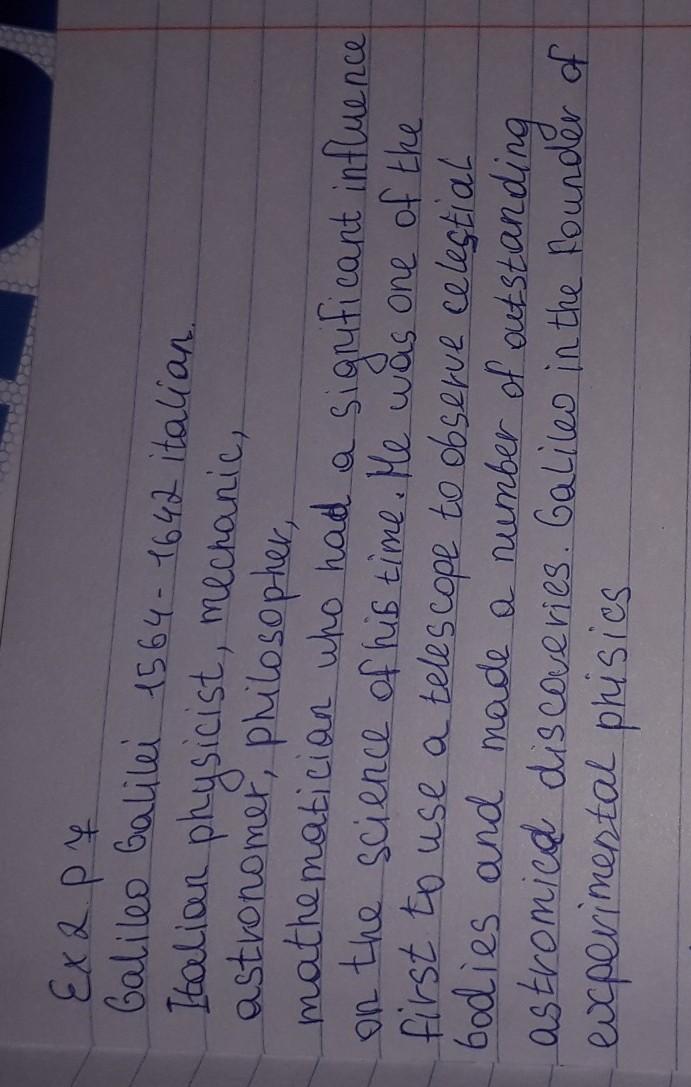 Ex 2 p 7
Galileo Galilei 1564-1642 italian.
Italian physicist, mechanic,
astronomer, philosopher,
mathematician who had a significant influence
on the science of his time. He was one of the
first to use a telescope to observe celestial
bodies and made a number of outstanding
astromical discoveries. Galileo in the founder of
experimental phisics